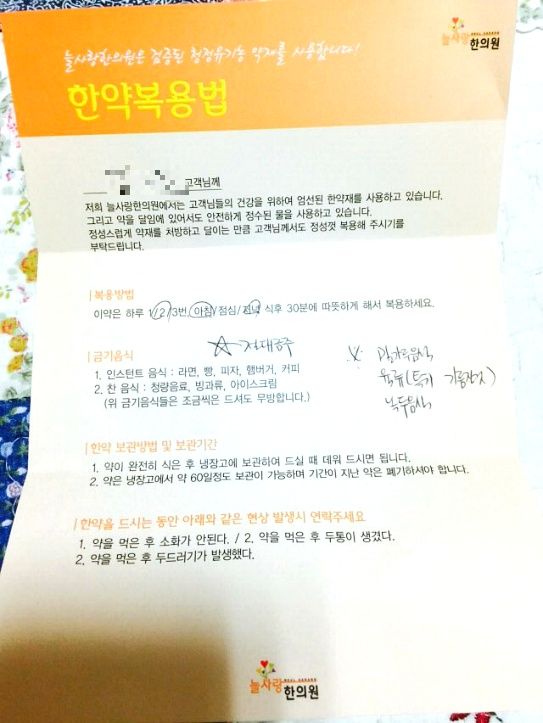 늘사랑한의원은 검증된 청정유기농 약재를 사용합니다!
늘사랑한의원
한약복용법
고객님께
저희 늘사랑한의원에서는 고객님들의 건강을 위하여 엄선된 한약재를 사용하고 있습니다.
그리고 약을 달임에 있어서도 안전하게 정수된 물을 사용하고 있습니다.
정성스럽게 약재를 처방하고 달이는 만큼 고객님께서도 정성껏 복용해 주시기를
부탁드립니다.
복용방법
이약은 하루 1/2/3번, 아침/점심/저녁 식후 30분에 따뜻하게 해서 복용하세요.
☆ 절대금주
금기음식
1. 인스턴트 음식 : 라면, 빵, 피자, 햄버거, 커피
2. 찬 음식 : 청량음료, 빙과류, 아이스크림
(위 금기음식들은 조금씩은 드셔도 무방합니다.)
밀가루음식
육류(특기 기름진것)
녹두음식
한약 보관방법 및 보관기간
1. 약이 완전히 식은 후 냉장고에 보관하여 드실 때 데워 드시면 됩니다.
2. 약은 냉장고에서 약 60일정도 보관이 가능하며 기간이 지난 약은 폐기하셔야 합니다.
한약을 드시는 동안 아래와 같은 현상 발생시 연락주세요
1. 약을 먹은 후 소화가 안된다. / 2. 약을 먹은 후 두통이 생겼다.
2. 약을 먹은 후 두드러기가 발생했다.
늘사랑한의원